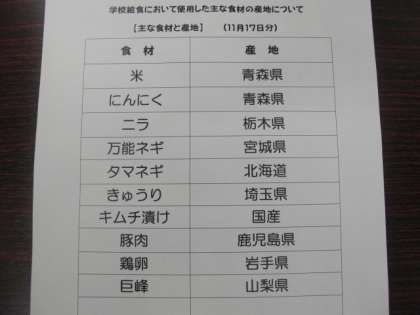 学校給食において使用した主な食材の産地について
【主な食材と産地】 (11月17日分)
食材 産地
米 青森県
にんにく 青森県
ニラ 栃木県
万能ネギ 宮城県
タマネギ 北海道
きゅうり 埼玉県
キムチ漬け 国産
豚肉 鹿児島県
鶏卵 岩手県
巨峰 山梨県